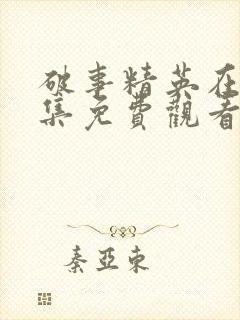 破事精英在
集免費觀看
秦亞東